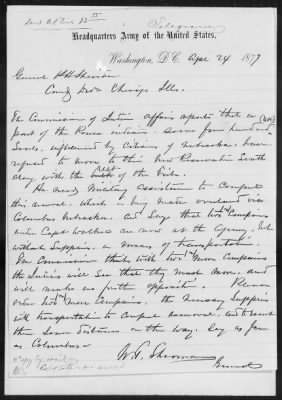 Telegram
Headquarters Army of the United States.
Washington, D.C. Apr 24 1877
Genl P.H. Sheridan
Comdg Div Chicago Ills.
The Commissioner of Indian Affairs reports that a
part of the Ponca indians. some four hundred (400)
Souls, influenced by citizens of Nebraska, have
refused to move to their New Reservation South
along with the rest of the tribe.
He needs Military assistance to compel
this removal, which is being made overland via
Columbus Nebraska, and Says that two companies
under Capt are now at the Agency, but
without Supplies, or means of transportation.
The Commissioner thinks with two more Companies
the Indians will see that they must move, and
will make no further opposition. Please
order two more Companies, the necessary Supplies
with transportation to compel removal, and escort
them Some distance on the way. Say as far
as Columbus
W. T. Sherman
General